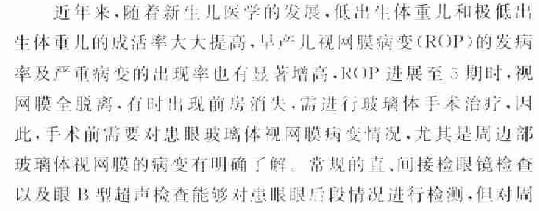 近年来,随着新生儿医学的发展,低出生体重儿和极低出
生体重儿的成活率大大提高,早产儿视网膜病变(ROP)的发病
率及严重病变的出现率也有显著增高,ROP 进展至 5 期时,视
网膜全脱离,有时出现前房消失,需进行玻璃体手术治疗,因
此,手术前需要对患眼玻璃体视网膜病变情况,尤其是周边部
玻璃体视网膜的病变有明确了解。常规的直、间接检眼镜检查
以及眼 B 型超声检查能够对患眼眼后段情况进行检测,但对周